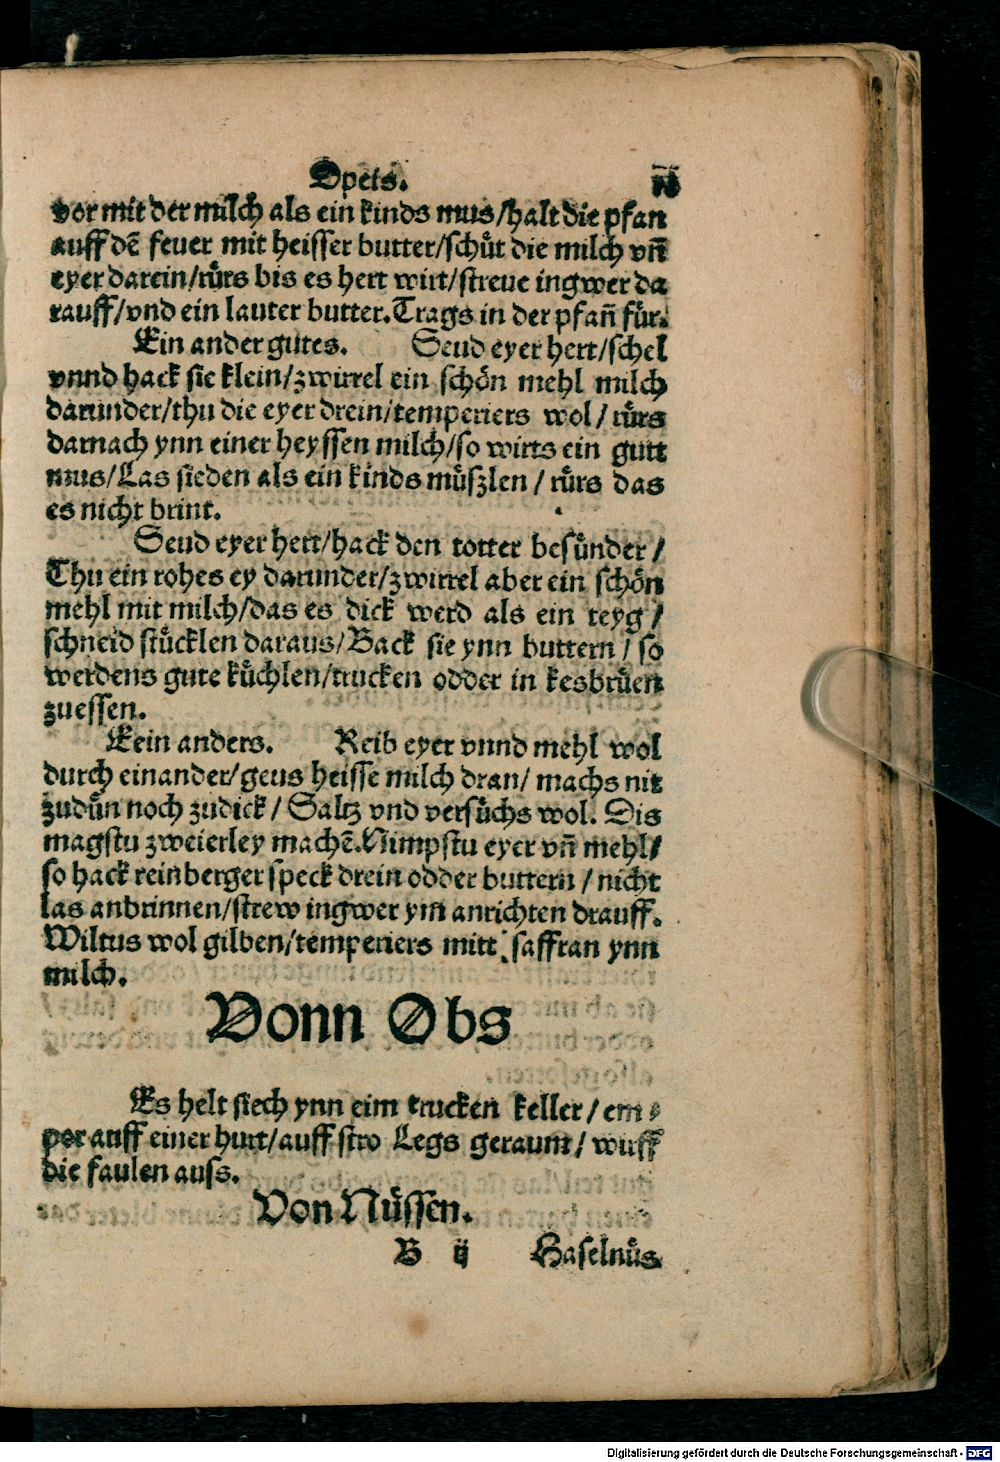 Speis.
vor mit der milch als ein kinds mus/halt die pfan
auff dē feuer mit heisser butter/schüt die milch vñ
eyer darein/rürs bis es hert wirt/streue ingwer da
rauff/vnd ein lauter butter. Trags in der pfañ für.
Ein ander gutes. Seud eyer hert/schel
vnnd hack sie klein/zwirrel ein schön mehl milch
darunder/thu die eyer drein/temperiers wol/rürs
darnach ynn einer heyssen milch/so wirts ein gutt
mus/Las sieden als ein kinds müszlen/rürs das
es nicht brint.
Seud eyer hert/hack den totter besünder/
Thu ein rohes ey darunder/zwirrel aber ein schön
mehl mit milch/das es dick werd als ein teyg/
schneid stücklen daraus/Back sie ynn buttern/so
werdens gute küchlen/trucken odder in kesbrüen
zuessen.
Eein anders. Reib eyer vnnd mehl wol
durch einander/geus heisse milch dran/machs nit
zudün noch zudick/Saltz vnd versüchs wol. Dis
magstu zweierley machē. Nimpstu eyer vñ mehl/
so hack reinberger speck drein odder buttern/nicht
las anbrinnen/strew ingwer ym anrichten drauff.
Wiltus wol gilben/temperiers mitt saffran ynn
milch.
Vonn Obs
Es helt siech ynn eim trucken keller/em⸗
por auff einer hurt/auff stro Legs geraum/wuff
die faulen auss.
Von Nüssen.
B ij Haselnüs
Digitalisierung gefördert durch die Deutsche Forschungsgemeinschaft - DFG